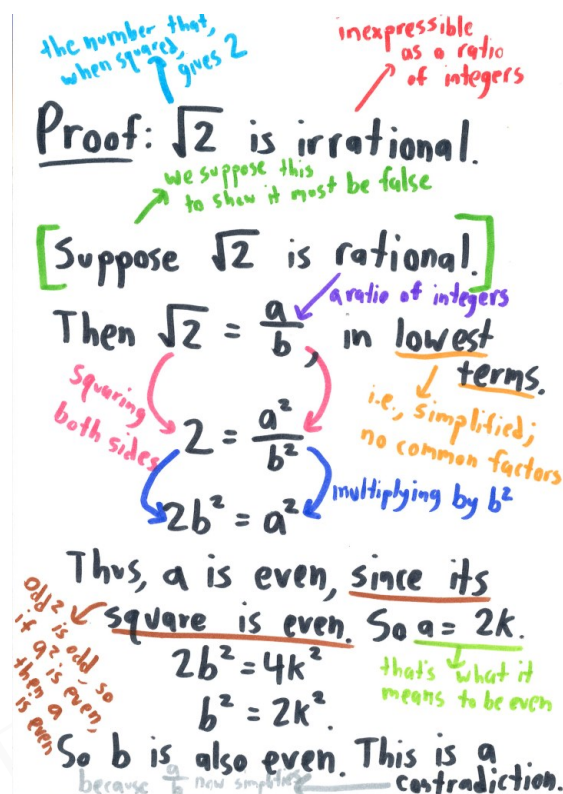 the number that,
when squared,
gives 2
inexpressible
as a ratio
of integers
Proof: √2 is irrational.
we suppose this
to show it must be false
[Suppose √2 is rational.]
a ratio of integers
Then √2 = a/b, in lowest
terms.
squaring
both sides
i.e., simplified;
no common factors
2 = a²/b²
multiplying by b²
2b² = a²
Thus, a is even, since its
square is even. So a = 2k.
odd² is odd, so
if a² is even,
then a
is even
2b² = 4k²
that's what it
means to be even
b² = 2k².
So b is also even. This is a
contradiction.
because a/b now simplifies